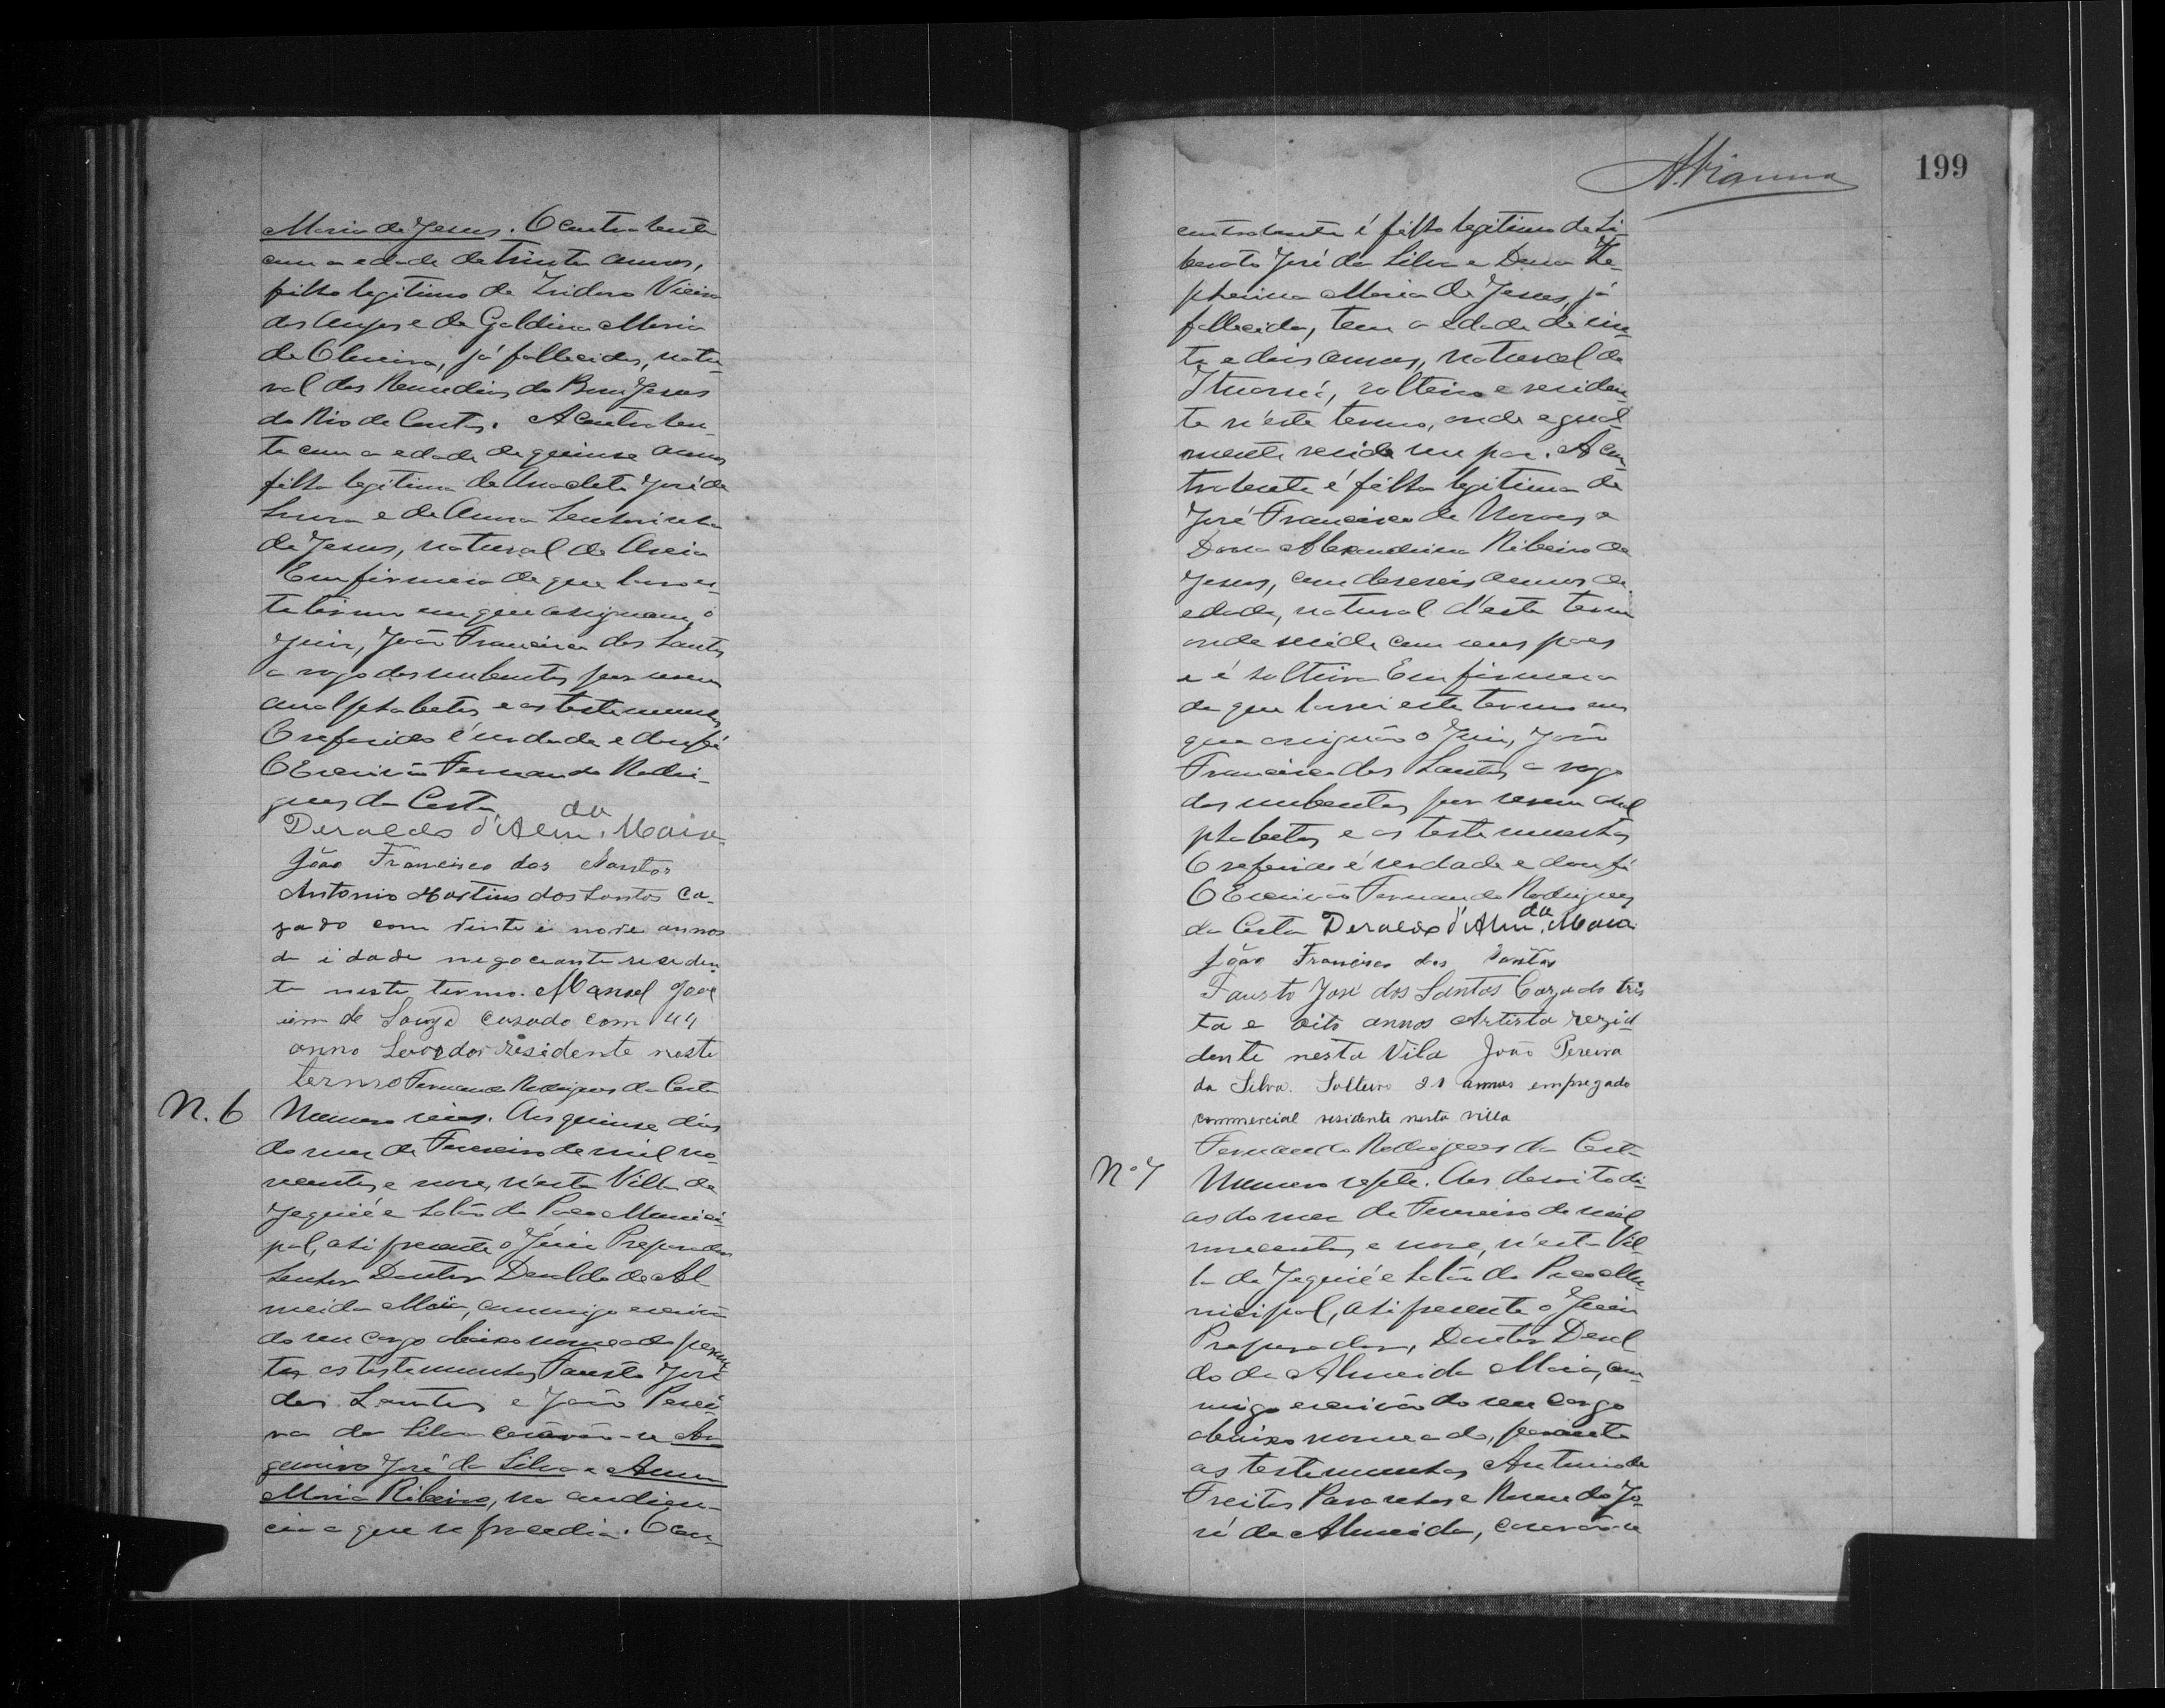 Maria de Jesus. O contrahente
com a edade de trinta annos,
filho legitimo de Izidoro Vieira
dos Anjos e de Galdina Maria
de Oliveira, já fallecidos, natu-
ral dos Remedios do Bom Jesus
do Rio de Contas. A contrahen-
te com a edade de quinse annos
filha legitima de Anacleto José de
e de Anna Senhorinha
de Jesus, natural de Areia
Em firmesa do que lavrei es-
te termo em que assignam o
Juiz, João Francisco dos Santos
a rogo dos nubentes por serem
analphabetos e as testemunhas
O referido é verdade e dou fé
O Escrivão Fernando Rodri-
gues da Costa
Deraldo d'Alm.da Maia
João Francisco dos Santos
Antonio Martins dos Santos Ca-
zado com vinte i nove annos
de idade negociante residen-
te neste termo. Manoel Joaq
uim de Souza casado com 44
anno Lavrador residente neste
termo Fernando Rodrigues da Costa
N. 6 Numero seis. Aos quinse dias
do mez de Fevereiro de mil no-
vecentos e nove, n'esta Villa de
Jequié e Salão do Paço Munici-
pal, ahi presente o Juiz Preparador
Senhor Doutor Deraldo de Al
meida Maia, commigo escrivão
do seu cargo abaixo nomeado presen
tes as testemunhas Fausto José
dos Santos e João Perei-
ra da Silva casarão-se Ar
gemiro José da Silva e Anna
Maria Ribeiro, na audien-
cia a que se procedia. O con-
A. Vianna
199
contrahente é filho legitimo de Li-
berato José da Silva e Dona Ze-
pherina Maria de Jesus, já
fallecida, tem a edade de vin-
te e dois annos, natural de
Ituassú, solteiro e residen-
te n'este termo, onde egual
mente reside seu pae. A con
trahente é filha legitima de
José Francisco de Novaes e
Dona Alexandrina Ribeiro de
Jesus, com deseseis annos de
edade, natural d'este termo
onde reside com seus paes
e é solteira Em firmesa
do que lavrei este termo em
que assignão o Juiz, João
Francisco dos Santos a rogo
dos nubentes por serem anal
phabetos e as testemunhas
O referido é verdade e dou fé
O Escrivão Fernando Rodrigues
da Costa Deraldo d'Alm.da Maia
João Francisco dos Santos
Fausto José dos Santos Cazado trin
ta e oito annos Artista rezid
dente nesta Vila João Pereira
da Silva. Solteiro 21 annos empregado
commercial residente nesta villa
Fernando Rodrigues da Costa
No 7 Numero sete. Aos desoito di-
as do mez de Fevereiro de mil
novecentos e nove, n'esta Vil-
la de Jequié e Salão do Paço Mu-
nicipal, ahi presente o Juiz
Preparador, Doutor Deral
do de Almeida Maia, com-
migo escrivão do seu cargo
abaixo nomeado, perante
as testemunhas Antonio de
Freitas Paranhos e José de Almeida, casarão-se